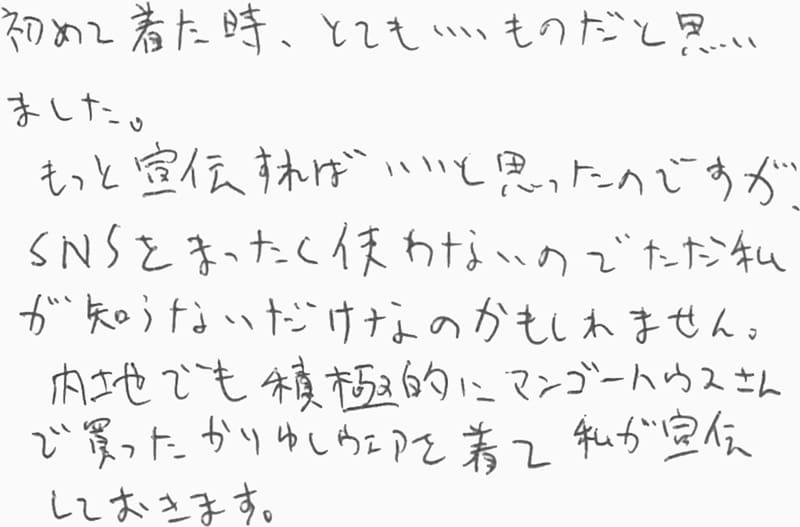 初めて着た時、とてもいいものだと思い
ました。
もっと宣伝すればいいと思ったのですが、
SNSをまったく使わないのでただ私
が知らないだけなのかもしれません。
内地でも積極的にマンゴーハウスさん
で買ったかりゆしウェアを着て私が宣伝
しておきます。